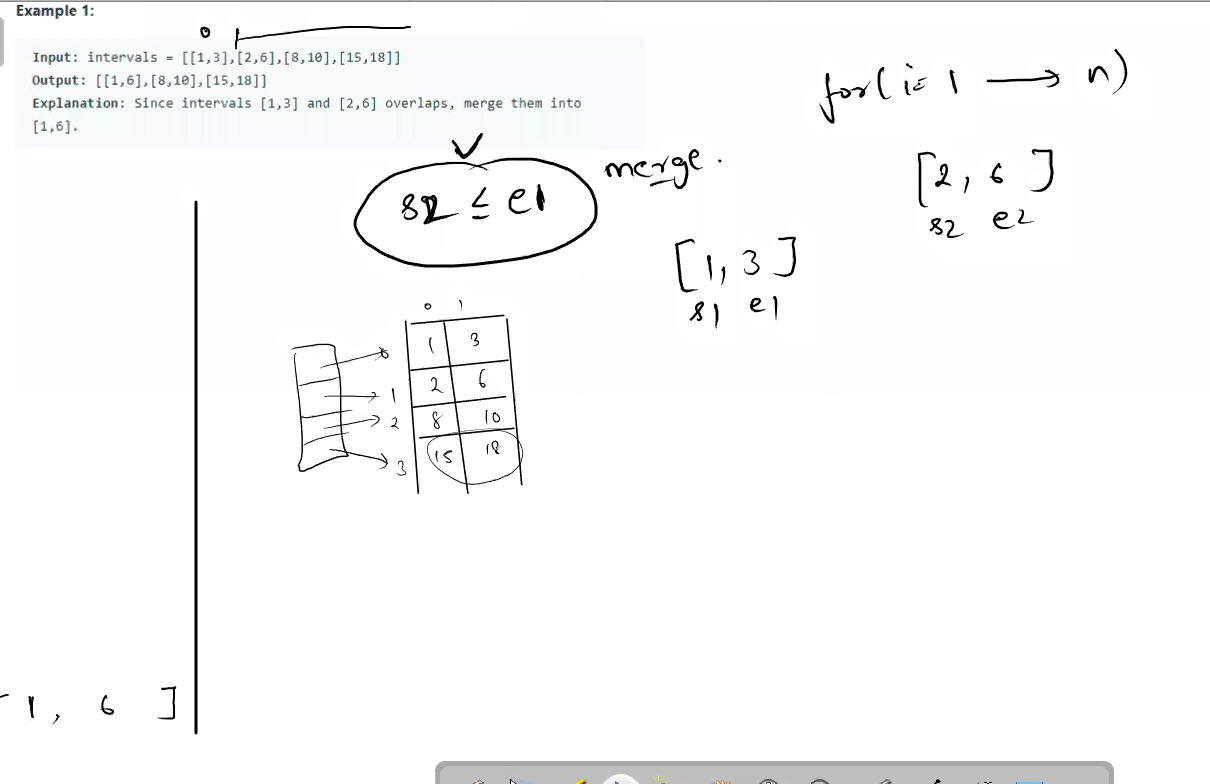 Example 1:
0
Input: intervals = [[1,3],[2,6],[8,10],[15,18]]
Output: [[1,6],[8,10],[15,18]]
Explanation: Since intervals [1,3] and [2,6] overlaps, merge them into
[1,6].
for(i= 1 → n)
merge.
s2 ≤ e1
[2, 6 ]
s2 e2
[1, 3 ]
s1 e1
0 1
0 1 3
1 2 6
2 8 10
3 15 18
1, 6 ]